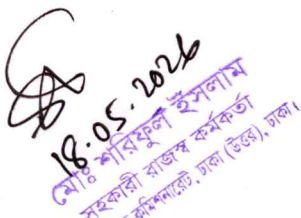 18.05.2026
মোঃ শরিফুল ইসলাম
সহকারী রাজস্ব কর্মকর্তা
কমিশনারেট, ঢাকা (উত্তর), ঢাকা।